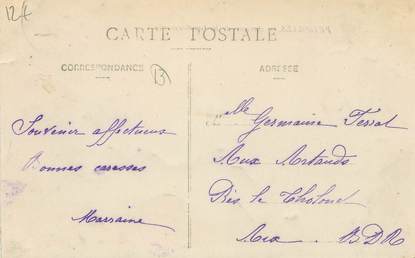 12f
CARTE POSTALE
CORRESPONDANCE
13
ADRESSE
Souvenir affectueux
Bonnes caresses
Marraine
Melle Germaine Terrat
Aux Artauds
Près le Tholonet
Aix. BDR